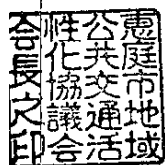 恵庭市地域
公共交通活
性化協議会
会長之印